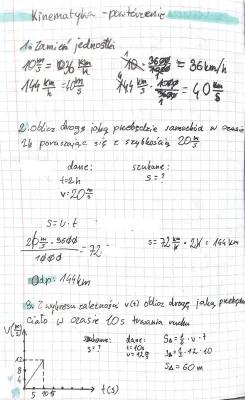 Kinematyka - powtórzenie
1. Zamień jednostki
10 m/s = 36 km/h
10 · 3600/1000 = 36 km/h
144 km/h = 40 m/s
144 km/s · 1000/3600 = 40 km/s
2. oblicz drogę jaką przebędzie samochód w czasie
2h poruszając się z szybkością 20 m/s
dane: szukane:
t=2h s=?
v=20 m/s
s=v·t
20 m/s · 3600/1000 = 72
s=72 km/h · 2h = 144 km
Odp: 144 km
3. Z wykresu zależności v(t) oblicz drogę jaką przebędzie
ciało w czasie 10s trwania ruchu
V(m/s)
szukane: dane:
s=? t=10s
v=12 m/s
SΔ=½·v·t
SΔ=½·12·10
SΔ=60m
12
5 10 t(s)